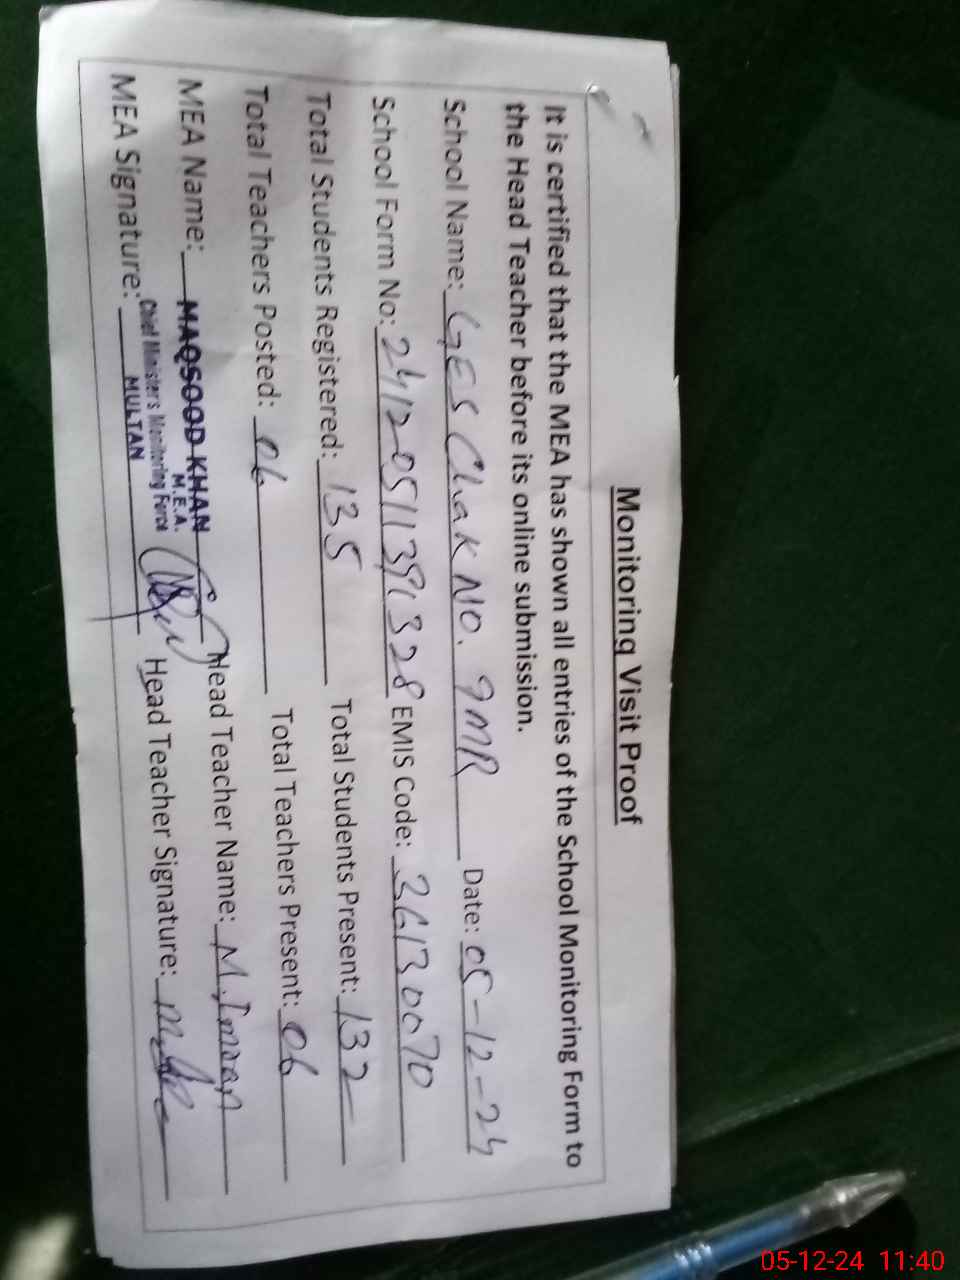 Monitoring Visit Proof
It is certified that the MEA has shown all entries of the School Monitoring Form to
the Head Teacher before its online submission.
School Name: GES Chak No. 9MR Date: 05-12-24
School Form No: 24120511391328 EMIS Code: 36130070
Total Students Registered: 135 Total Students Present: 132
Total Teachers Posted: 06 Total Teachers Present: 06
MEA Name: MAQSOOD KHAN Head Teacher Name: M. Imran
M.E.A.
Chief Minister's Monitoring Force
MULTAN
MEA Signature: Head Teacher Signature:
05-12-24 11:40